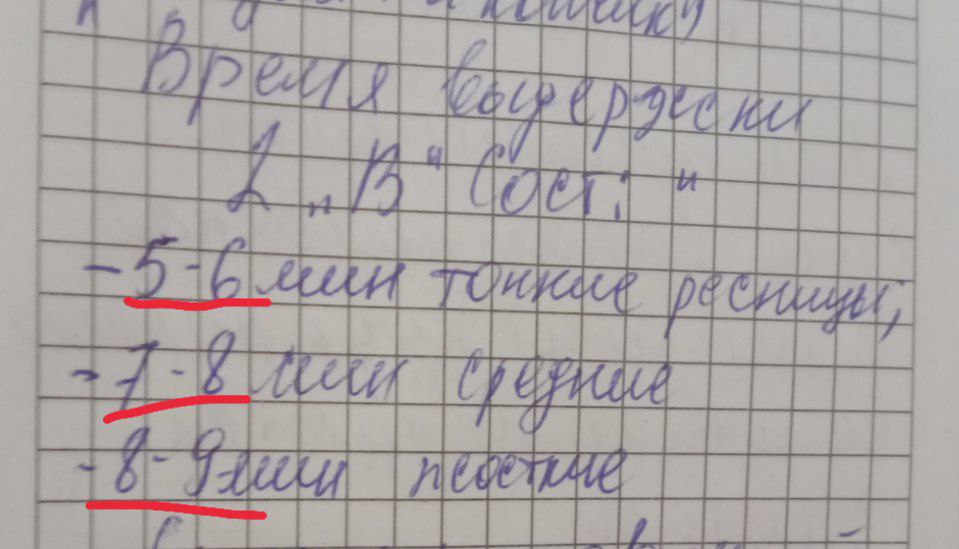 Время выдержки
1 „В" Сост: "
-5-6 мин тонкие ресницы;
-7-8 мин средние
-8-9 мин жосткие